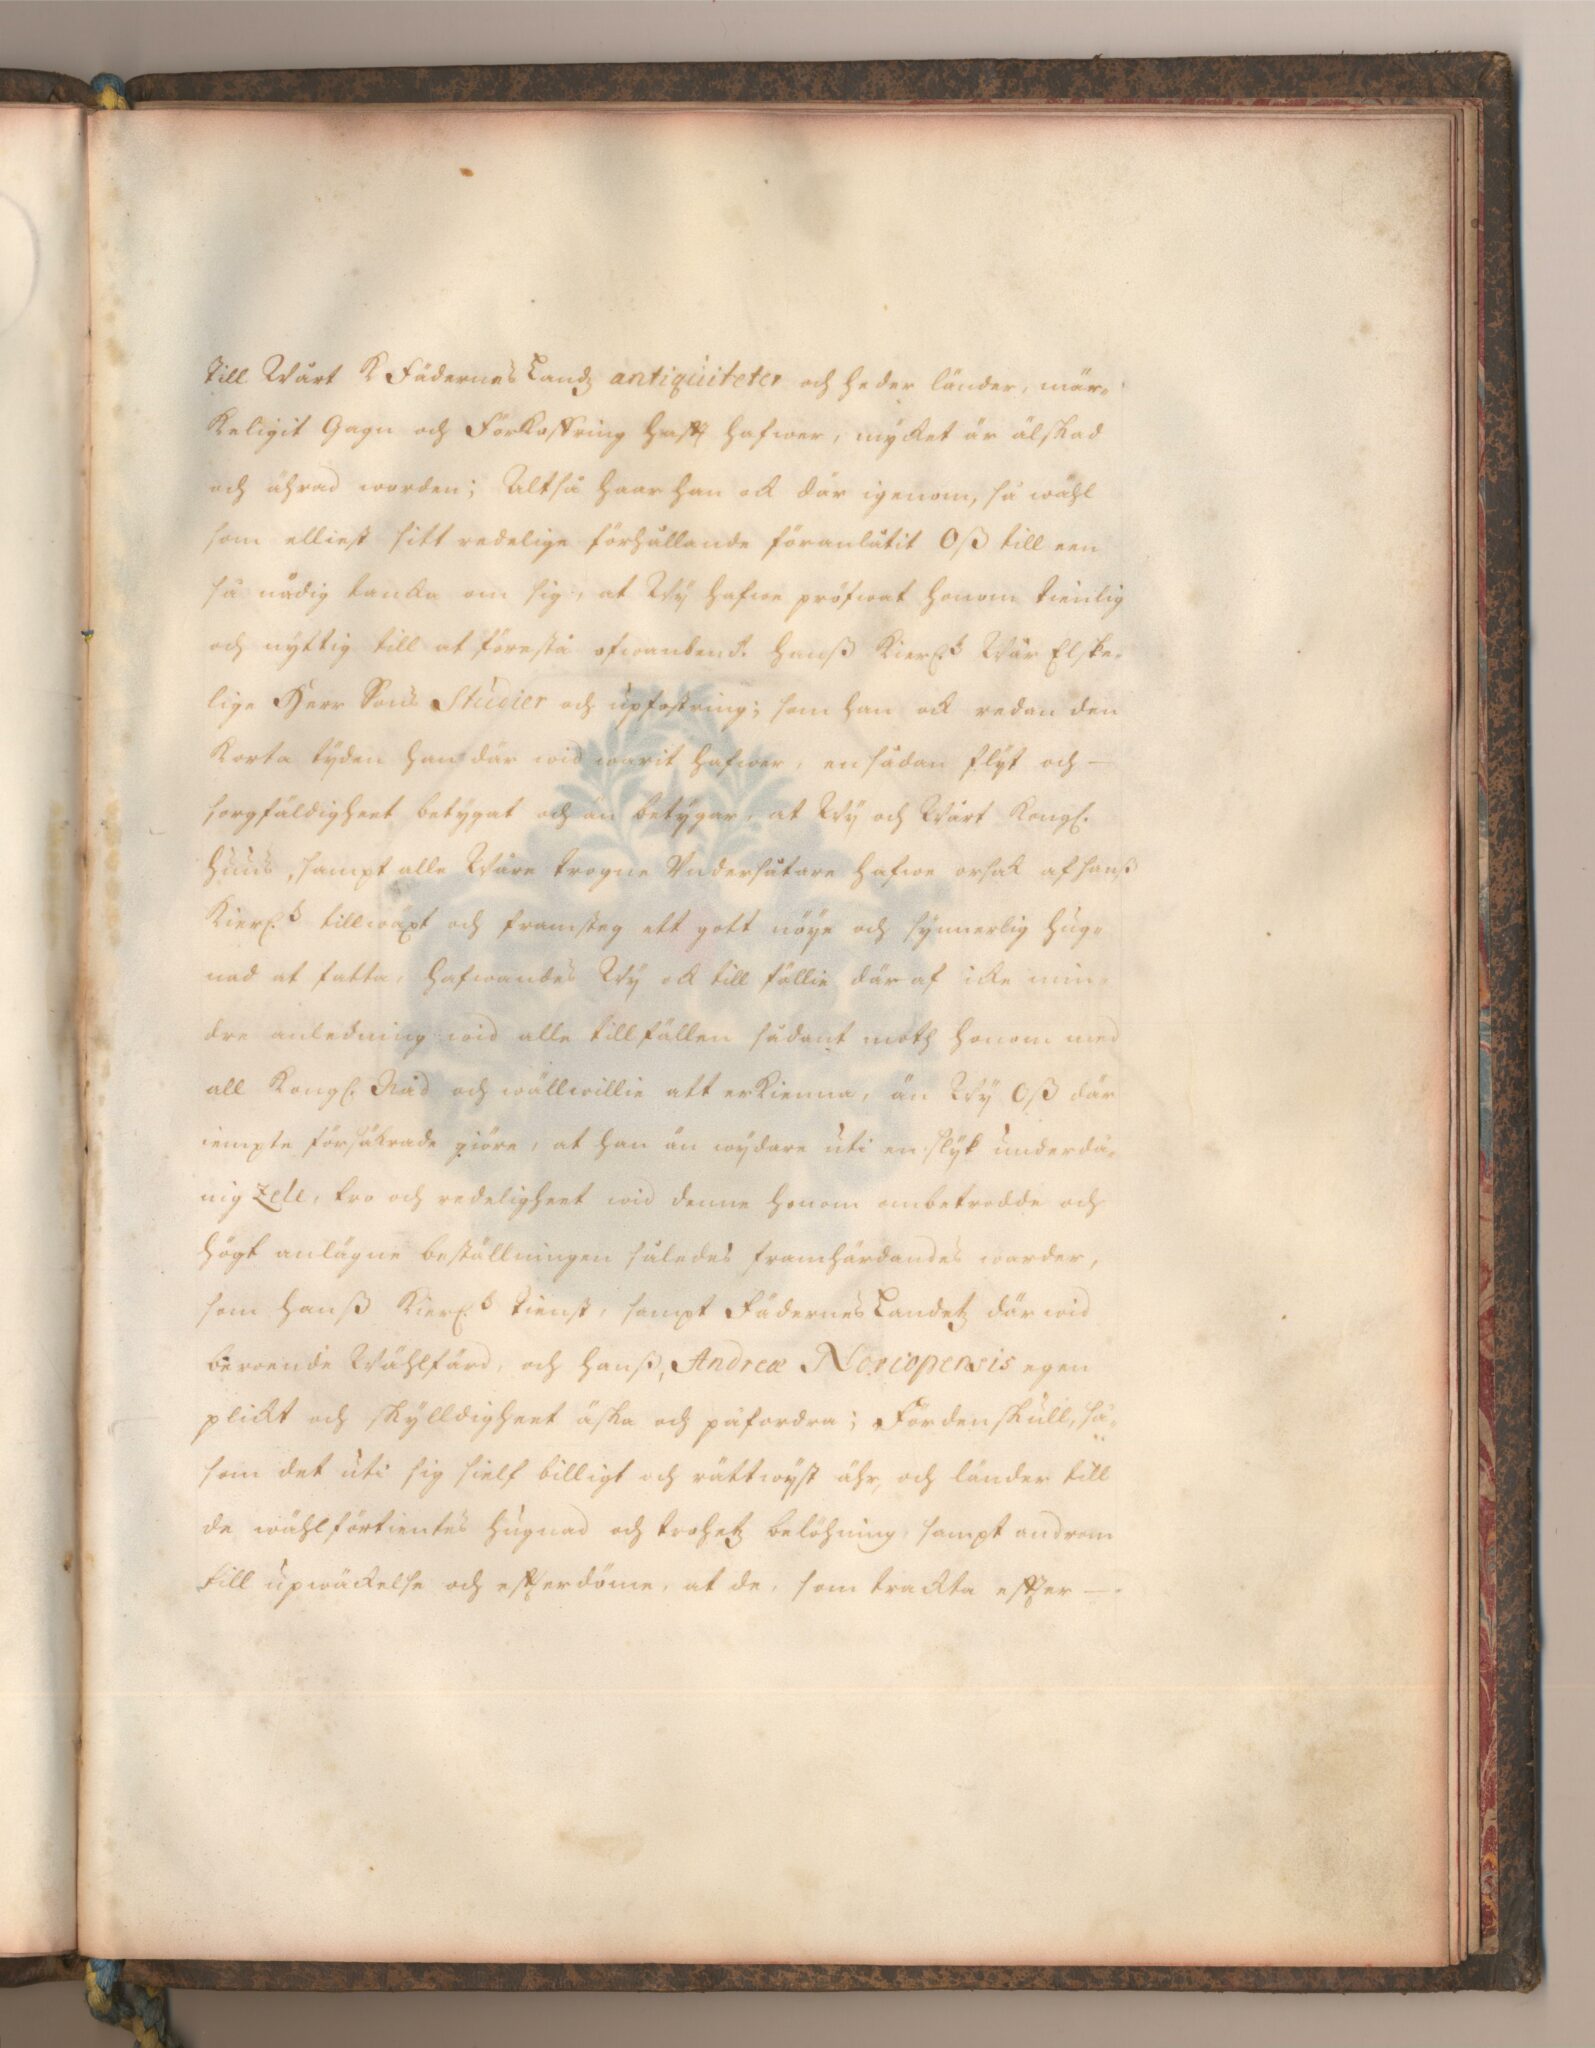 till Wårt K FädernesLandz antiquiteter och heder länder, mär-
keligit Gagn och Förkofring hafft hafwer, mycket är älskad
och ährad worden; Altså haar han ock där igenom, så wähl
som elliest sitt redelige förhållande föranlåtit Oß till een
så nådig tancka om sig, at Wÿ hafwe pröfwat honom tienlig
och nyttig till at förestå ofwanbem:te hanß Kierl:s Wår Elske-
lige Herr Sons Studier och upfostring; som han ock redan den
korta tÿden han där wid warit hafwer, en sådan flÿt och —
sorgfäldigheet betÿgat och än betÿgar, at Wÿ och Wårt Kongl.
Huus, sampt alle Wåre trogne Vndersåtare hafwe orsak af hanß
Kierl:s tillwäxt och framsteg ett gott nöÿe och sÿnnerlig hug-
nad at fatta, hafwandes Wÿ ock till föllie där af icke min-
dre anledning wid alle tillfällen sådant moth honom med
all Kongl. Nåd och wällwillie att erkienna, än Wÿ Oß där
iempte försäkrade giöre, at han än wÿdare uti en slÿk underdå-
nig zele, tro och redeligheet wid denne honom ombetrodde och
högt anlägne beställningen således framhärdandes warder,
som hanß Kierl:s tienst, sampt FädernesLandetz där wid
beroende Wählfärd, och hanß, Andreæ Norcopensis egen
plickt och skÿlldigheet äska och påfordra; Fördenskull, så-
som det uti sig sielf billigt och rättwÿst ähr, och länder till
de wählförtientes hugnad och trohetz belöhning, sampt androm
till upwäckelse och effterdöme, at de, som trackta effter —